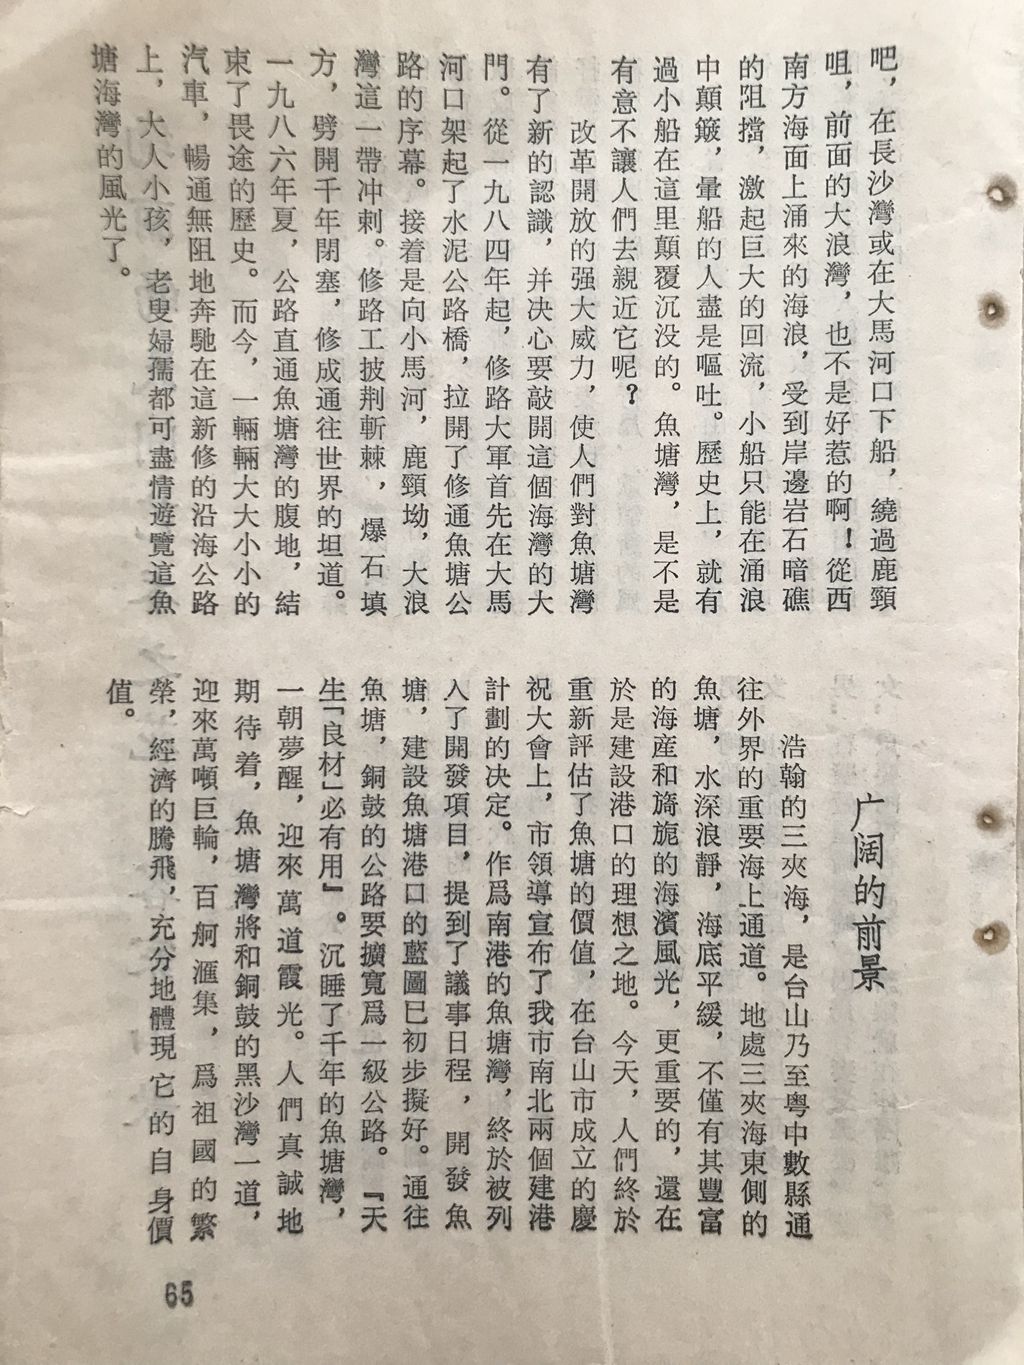 吧，在長沙灣或在大馬河口下船，繞過鹿頸
咀，前面的大浪灣，也不是好惹的啊！從西
南方海面上涌來的海浪，受到岸邊岩石暗礁
的阻擋，激起巨大的回流，小船只能在涌浪
中顛簸，暈船的人盡是嘔吐。歷史上，就有
過小船在這里顛覆沉没的。魚塘灣，是不是
有意不讓人們去親近它呢？
改革開放的强大威力，使人們對魚塘灣
有了新的認識，并决心要敲開這個海灣的大
門。從一九八四年起，修路大軍首先在大馬
河口架起了水泥公路橋，拉開了修通魚塘公
路的序幕。接着是向小馬河，鹿頸坳，大浪
灣這一帶冲刺。修路工披荆斬棘，爆石填
方，劈開千年閉塞，修成通往世界的坦道。
一九八六年夏，公路直通魚塘灣的腹地，結
束了畏途的歷史。而今，一輛輛大大小小的
汽車，暢通無阻地奔馳在這新修的沿海公路
上，大人小孩，老叟婦孺都可盡情遊覽這魚
塘海灣的風光了。
广阔的前景
浩翰的三夾海，是台山乃至粤中數縣通
往外界的重要海上通道。地處三夾海東側的
魚塘，水深浪靜，海底平緩，不僅有其豐富
的海産和旖旎的海濱風光，更重要的，還在
於是建設港口的理想之地。今天，人們終於
重新評估了魚塘的價值，在台山市成立的慶
祝大會上，市領導宣布了我市南北兩個建港
計劃的决定。作爲南港的魚塘灣，終於被列
入了開發項目，提到了議事日程，開發魚
塘，建設魚塘港口的藍圖巳初步擬好。通往
魚塘，銅鼓的公路要擴寬爲一級公路。『天
生「良材」必有用』。沉睡了千年的魚塘灣，
一朝夢醒，迎來萬道霞光。人們真誠地
期待着，魚塘灣將和銅鼓的黑沙灣一道，
迎來萬噸巨輪，百舸滙集，爲祖國的繁
榮，經濟的騰飛，充分地體現它的自身價
值。
65